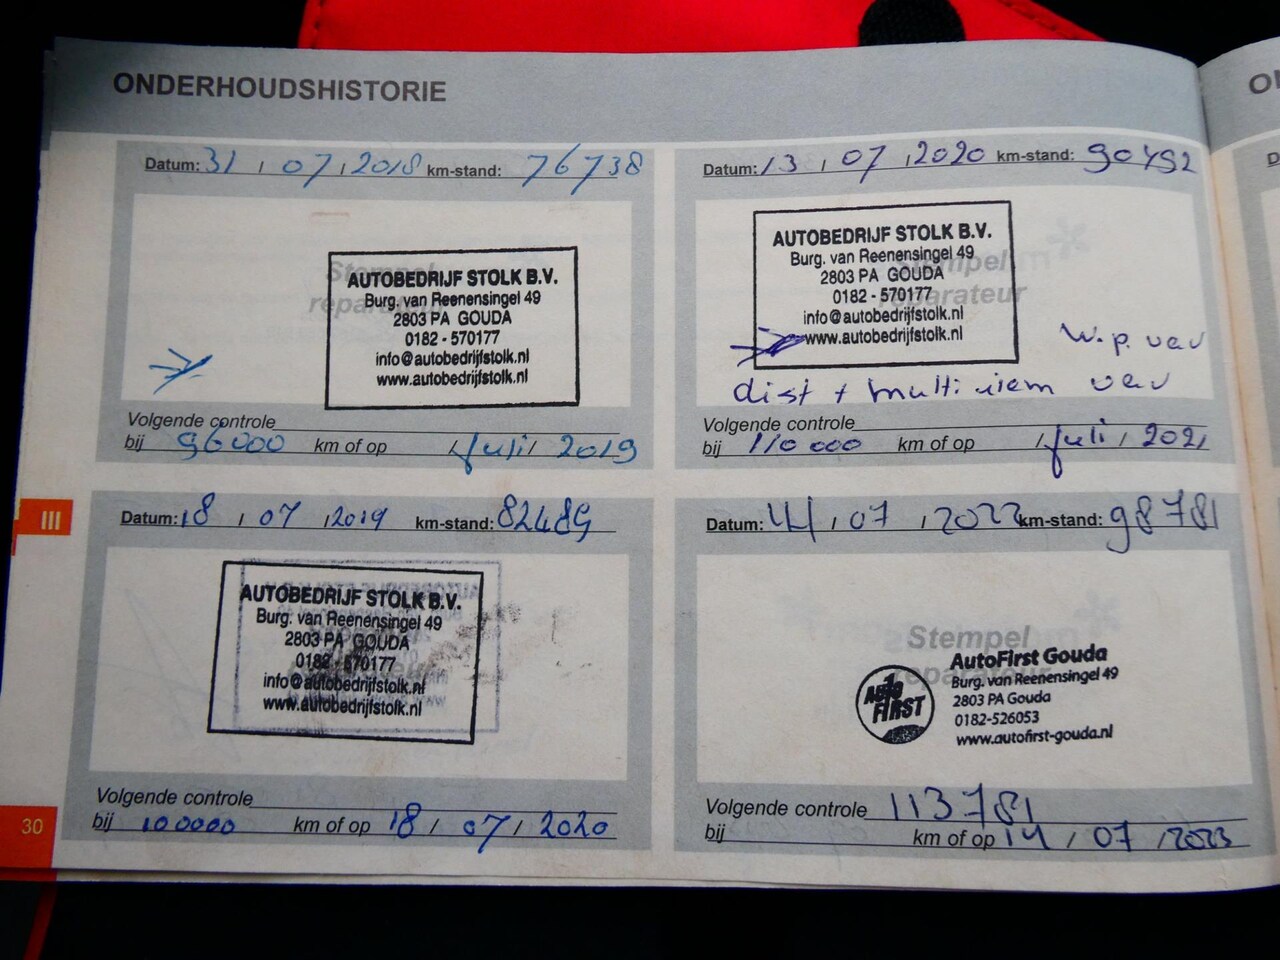 ONDERHOUDSHISTORIE
Datum: 31 / 07 / 2018 km-stand: 76738
Stempel
reparateur
AUTOBEDRIJF STOLK B.V.
Burg. van Reenensingel 49
2803 PA GOUDA
0182 - 570177
info@autobedrijfstolk.nl
www.autobedrijfstolk.nl
Volgende controle
bij 96000 km of op / Juli / 2019
Datum: 18 / 07 / 2019 km-stand: 82489
AUTOBEDRIJF STOLK B.V.
Burg. van Reenensingel 49
2803 PA GOUDA
0182 - 570177
info@autobedrijfstolk.nl
www.autobedrijfstolk.nl
Volgende controle
bij 100000 km of op 18 / 07 / 2020
Datum: 13 / 07 / 2020 km-stand: 90492
Stempel
reparateur
AUTOBEDRIJF STOLK B.V.
Burg. van Reenensingel 49
2803 PA GOUDA
0182 - 570177
info@autobedrijfstolk.nl
www.autobedrijfstolk.nl
w.p. vev
dist + multi riem vev
Volgende controle
bij 110000 km of op / Juli / 2021
Datum: 14 / 07 / 2022 km-stand: 98781
Stempel
reparateur
1
AUTO
FIRST
AutoFirst Gouda
Burg. van Reenensingel 49
2803 PA Gouda
0182-526053
www.autofirst-gouda.nl
Volgende controle 113781
bij km of op 14 / 07 / 2023
III
30